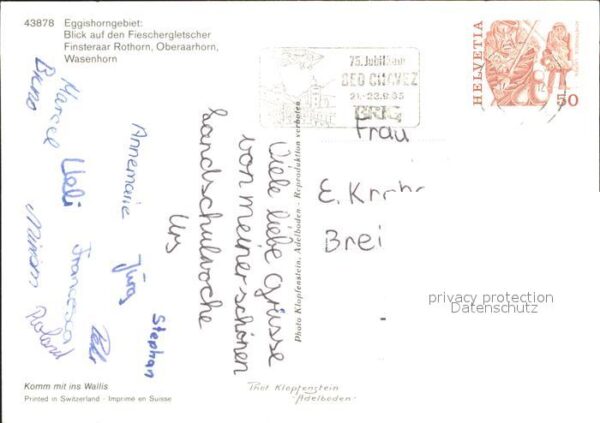 43878 Eggishorngebiet:
Blick auf den Fieschergletscher
Finsteraar Rothorn, Oberaarhorn,
Wasenhorn
75. Jubiläum
GEO CHAVEZ
21.-23.9.85
BRIG
HELVETIA
50
Frau
E.
Brei
Viele liebe Grüsse
von meiner schönen
Landschulwoche
Urs
Marcel
Beno
Ueli
Annemarie
Miriam
Francesca
Jürg
Stephan
Roland
Photo Klopfenstein, Adelboden - Reproduktion verboten
privacy protection
Datenschutz
Komm mit ins Wallis
Printed in Switzerland - Imprimé en Suisse
Phot Klopfenstein
-Adelboden-